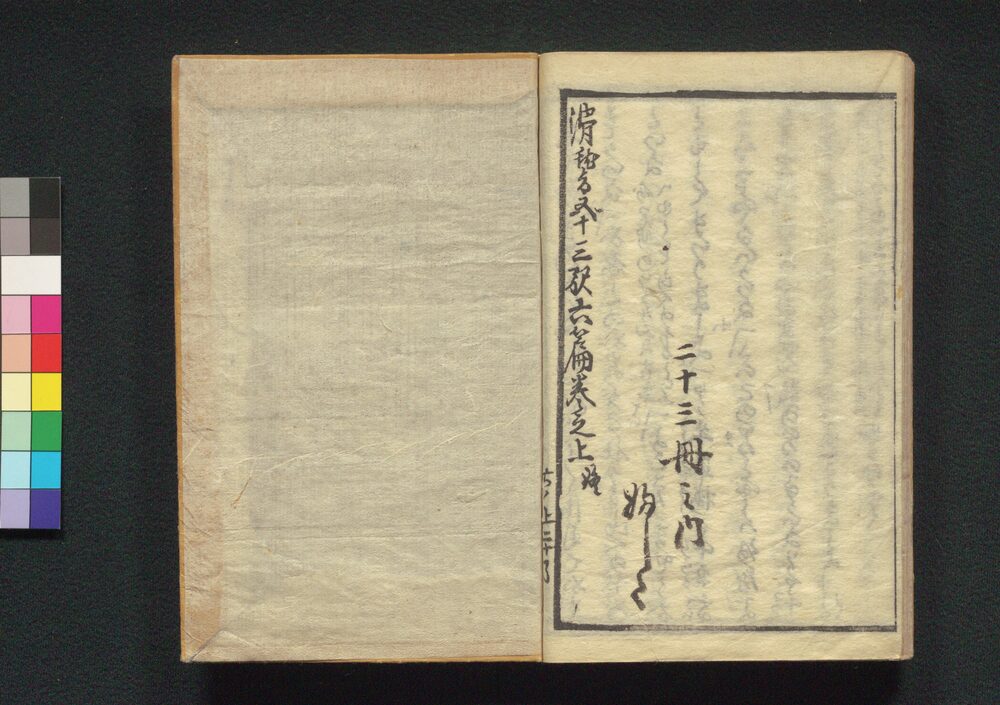 二十三冊之内
滑稽
五十三駅六篇巻之上終
六ノ上二十了